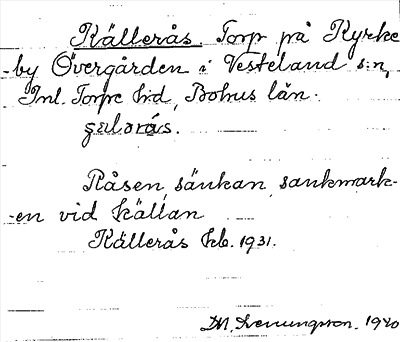 Källerås. Torp på Kyrke-
by Övergården i Vesteland s:n,
Inl. Torpe hd, Bohus län.
Råsen, sänkan, sankmark-
en vid källan
Källerås kb. 1931.
1920